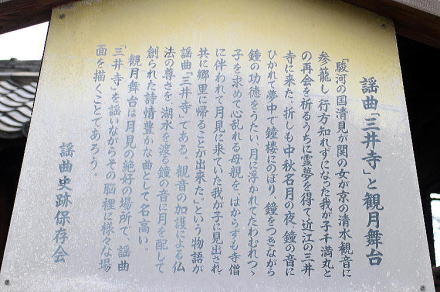 謡曲「三井寺」と観月舞台
「駿河の国清見が関の女が京の清水観音に
参籠し、行方知れずになった我が子千満丸と
の再会を祈るうちに霊夢を得て近江の三井
寺に来た。折しも中秋名月の夜、鐘の音に
ひかれて夢中で鐘楼にのぼり、鐘をつきながら
鐘の功徳をうたい、月に浮かれてたわむれつゝ
子を求めて心乱れる母親を、はからずも寺僧
に伴われて月見に来ていた我が子に見出され
共に郷里に帰ることが出来た」という物語が
謡曲「三井寺」である。観音の加護による仏
法の尊さを、湖水を渡る鐘の音に月を配して
創られた詩情豊かな曲として名高い。
観月舞台は月見の絶好の場所で、謡曲
「三井寺」を謡いながらその脳裡に様々な場
面を描くことであろう。
謡曲史跡保存会